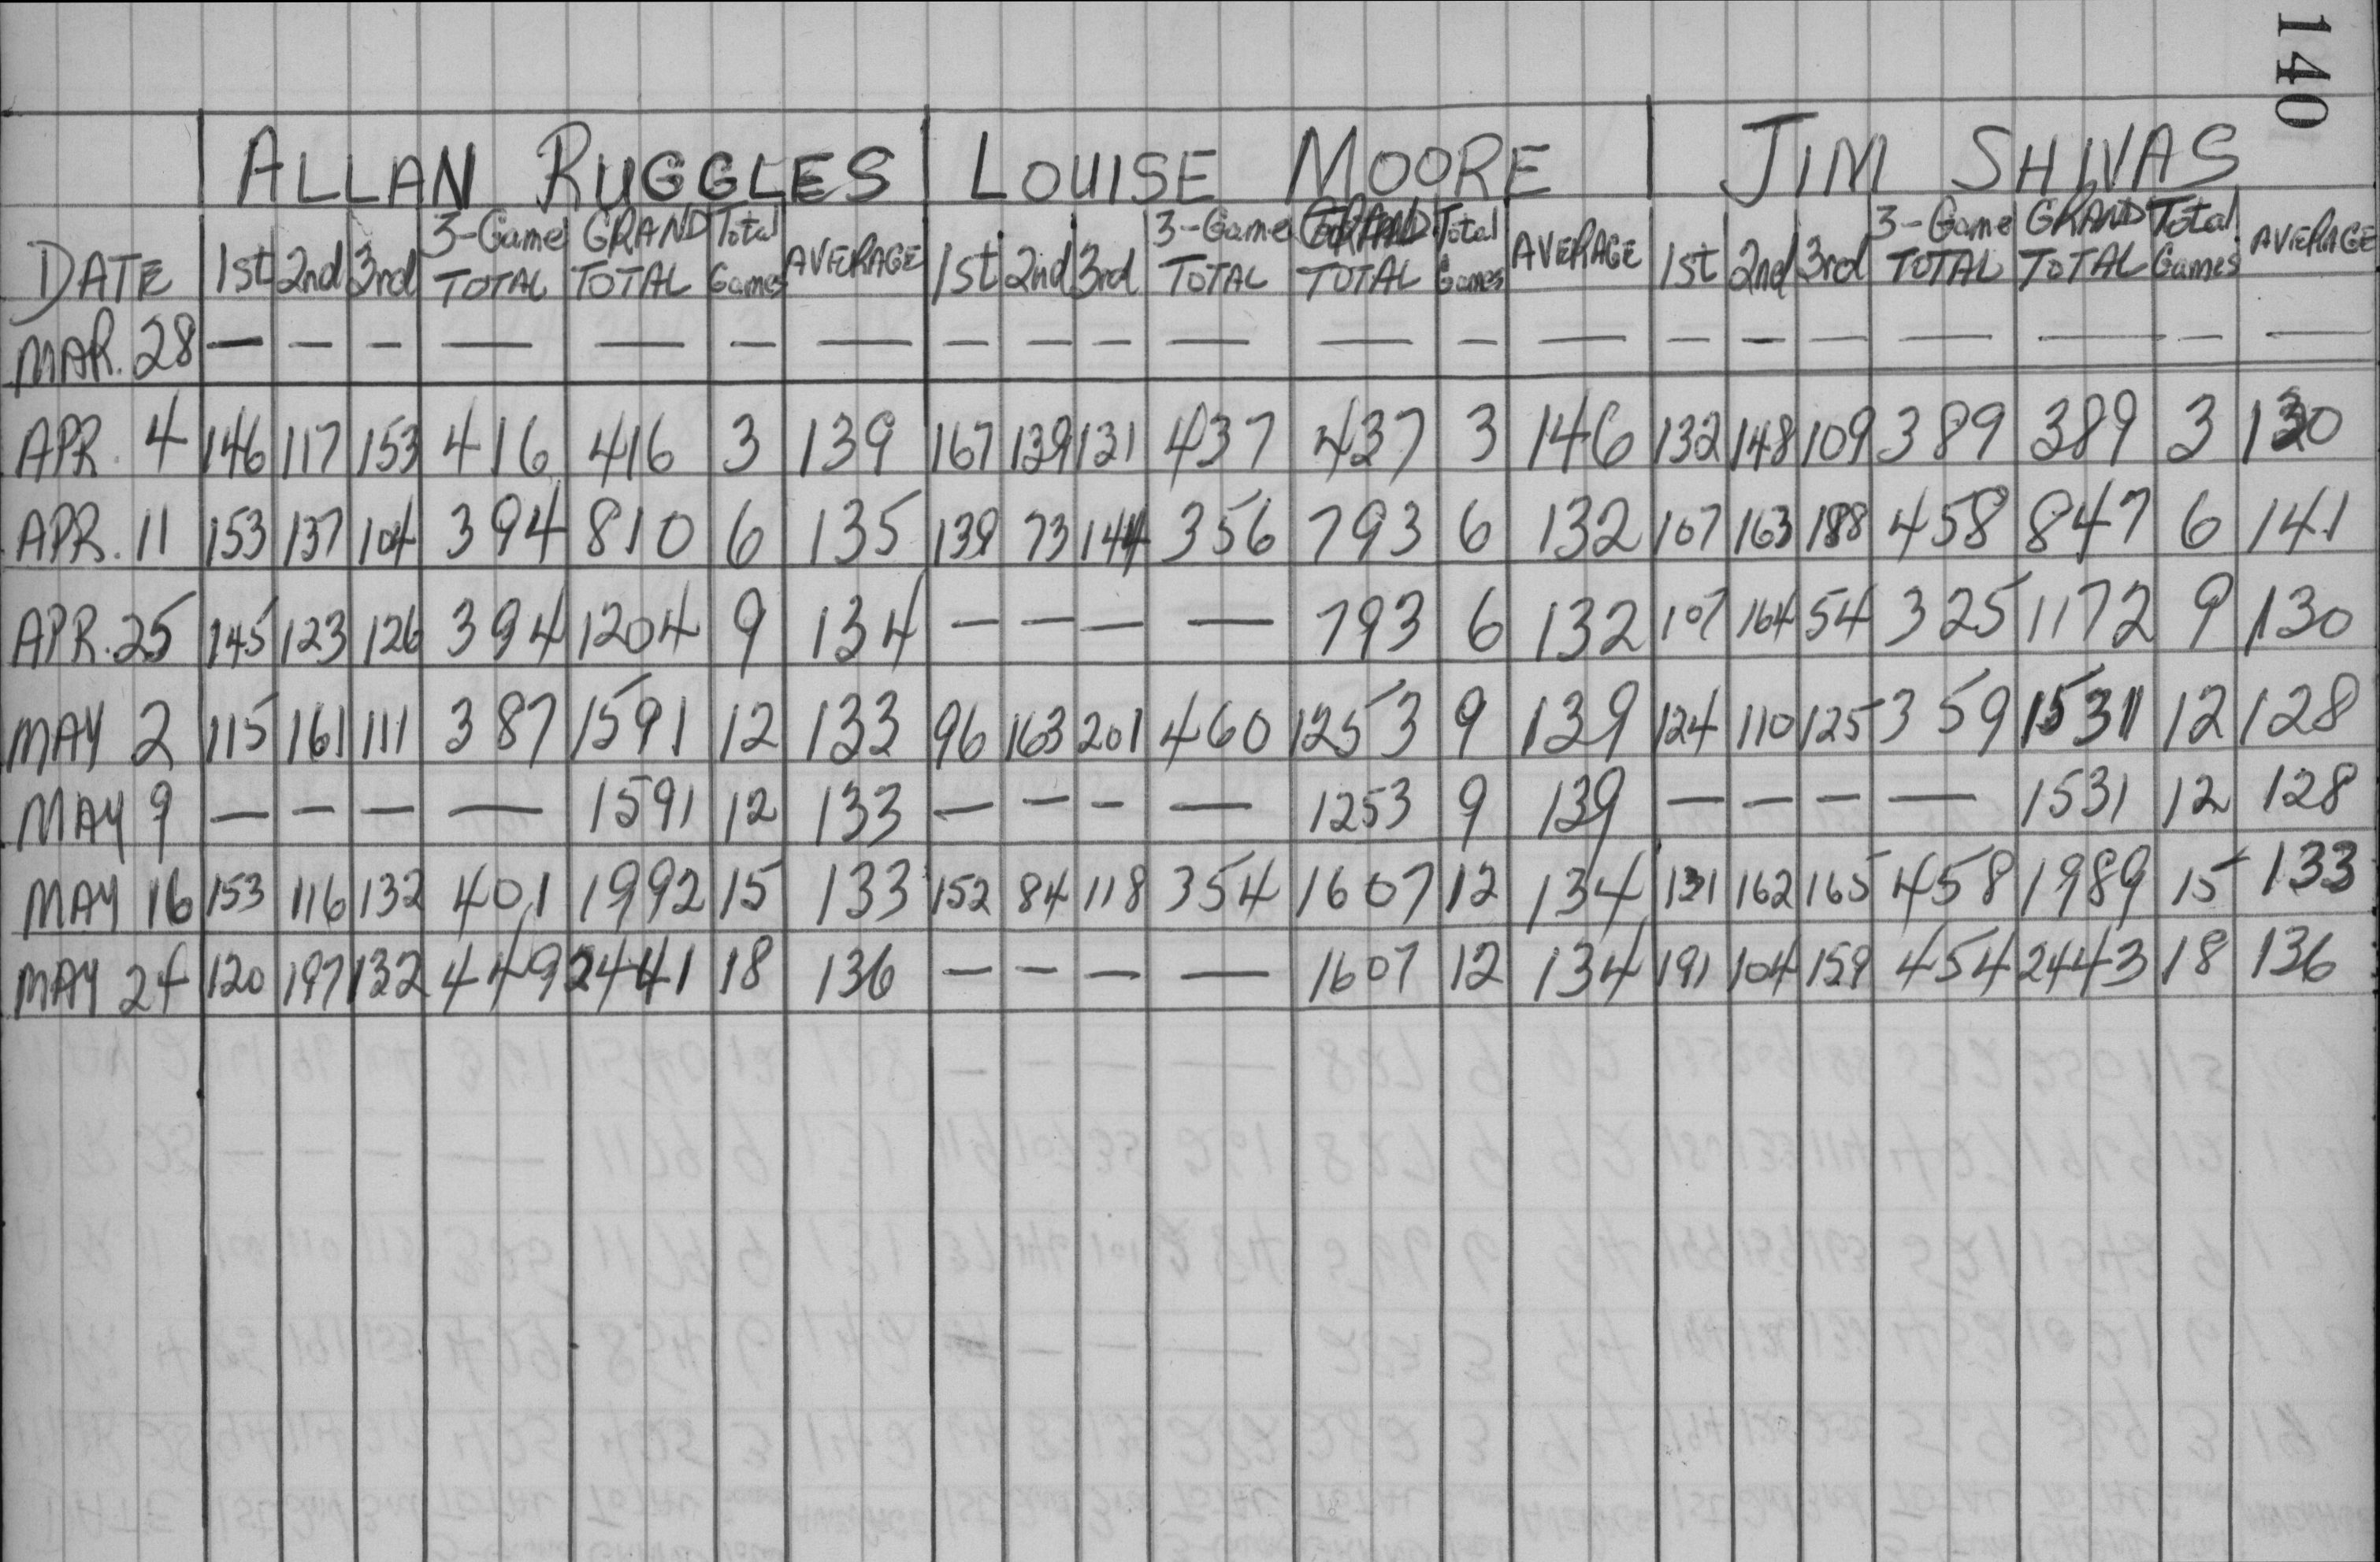 140
ALLAN RUGGLES LOUISE MOORE JIM SHIVAS
DATE 1st 2nd 3rd 3-Game TOTAL GRAND TOTAL Total Games AVERAGE 1st 2nd 3rd 3-Game TOTAL GRAND TOTAL Total Games AVERAGE 1st 2nd 3rd 3-Game TOTAL GRAND TOTAL Total Games AVERAGE
MAR. 28 — — — — — — — — — — — — — — — — — — — — —
APR. 4 146 117 153 416 416 3 139 167 139 131 437 437 3 146 132 148 109 389 389 3 130
APR. 11 153 137 104 394 810 6 135 139 73 144 356 793 6 132 107 163 188 458 847 6 141
APR. 25 145 123 126 394 1204 9 134 — — — — 793 6 132 107 164 54 325 1172 9 130
MAY 2 115 161 111 387 1591 12 133 96 163 201 460 1253 9 139 124 110 125 359 1531 12 128
MAY 9 — — — — 1591 12 133 — — — — 1253 9 139 — — — — 1531 12 128
MAY 16 153 116 132 401 1992 15 133 152 84 118 354 1607 12 134 131 162 165 458 1989 15 133
MAY 24 120 197 132 449 2441 18 136 — — — — 1607 12 134 191 104 159 454 2443 18 136